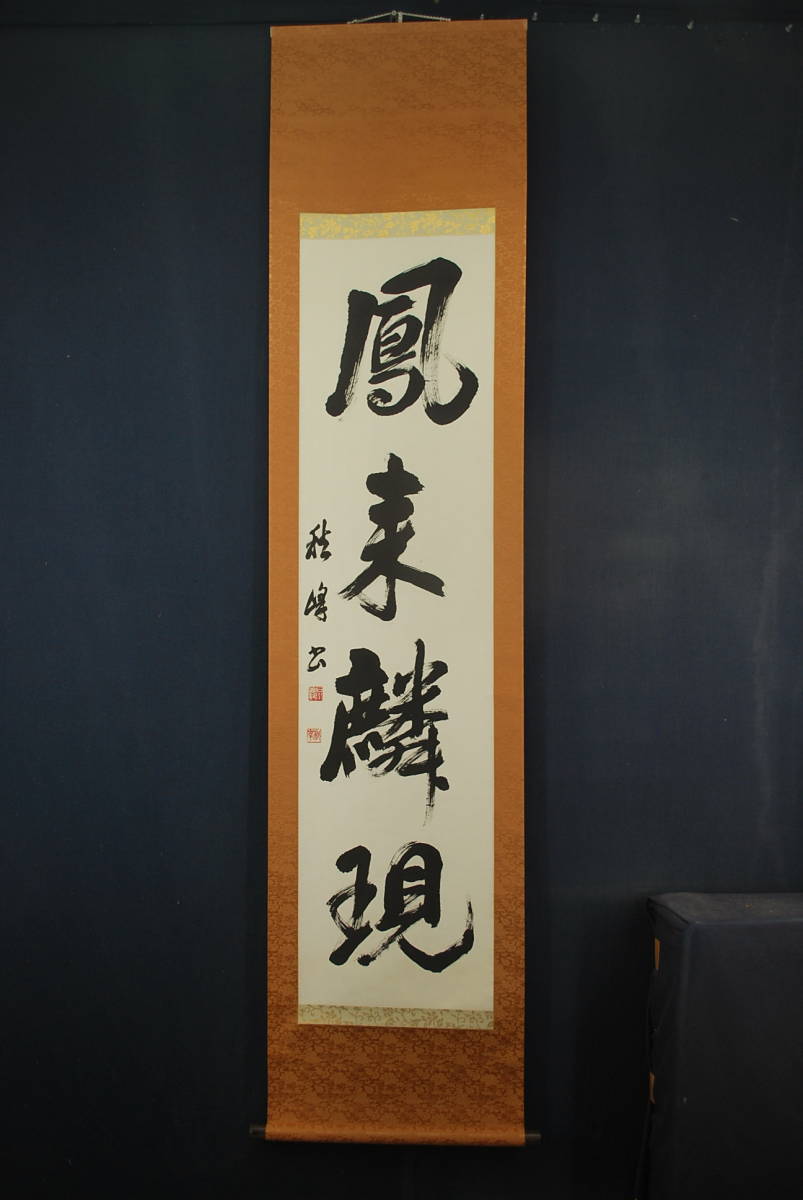 鳳来麟現
秋峰書